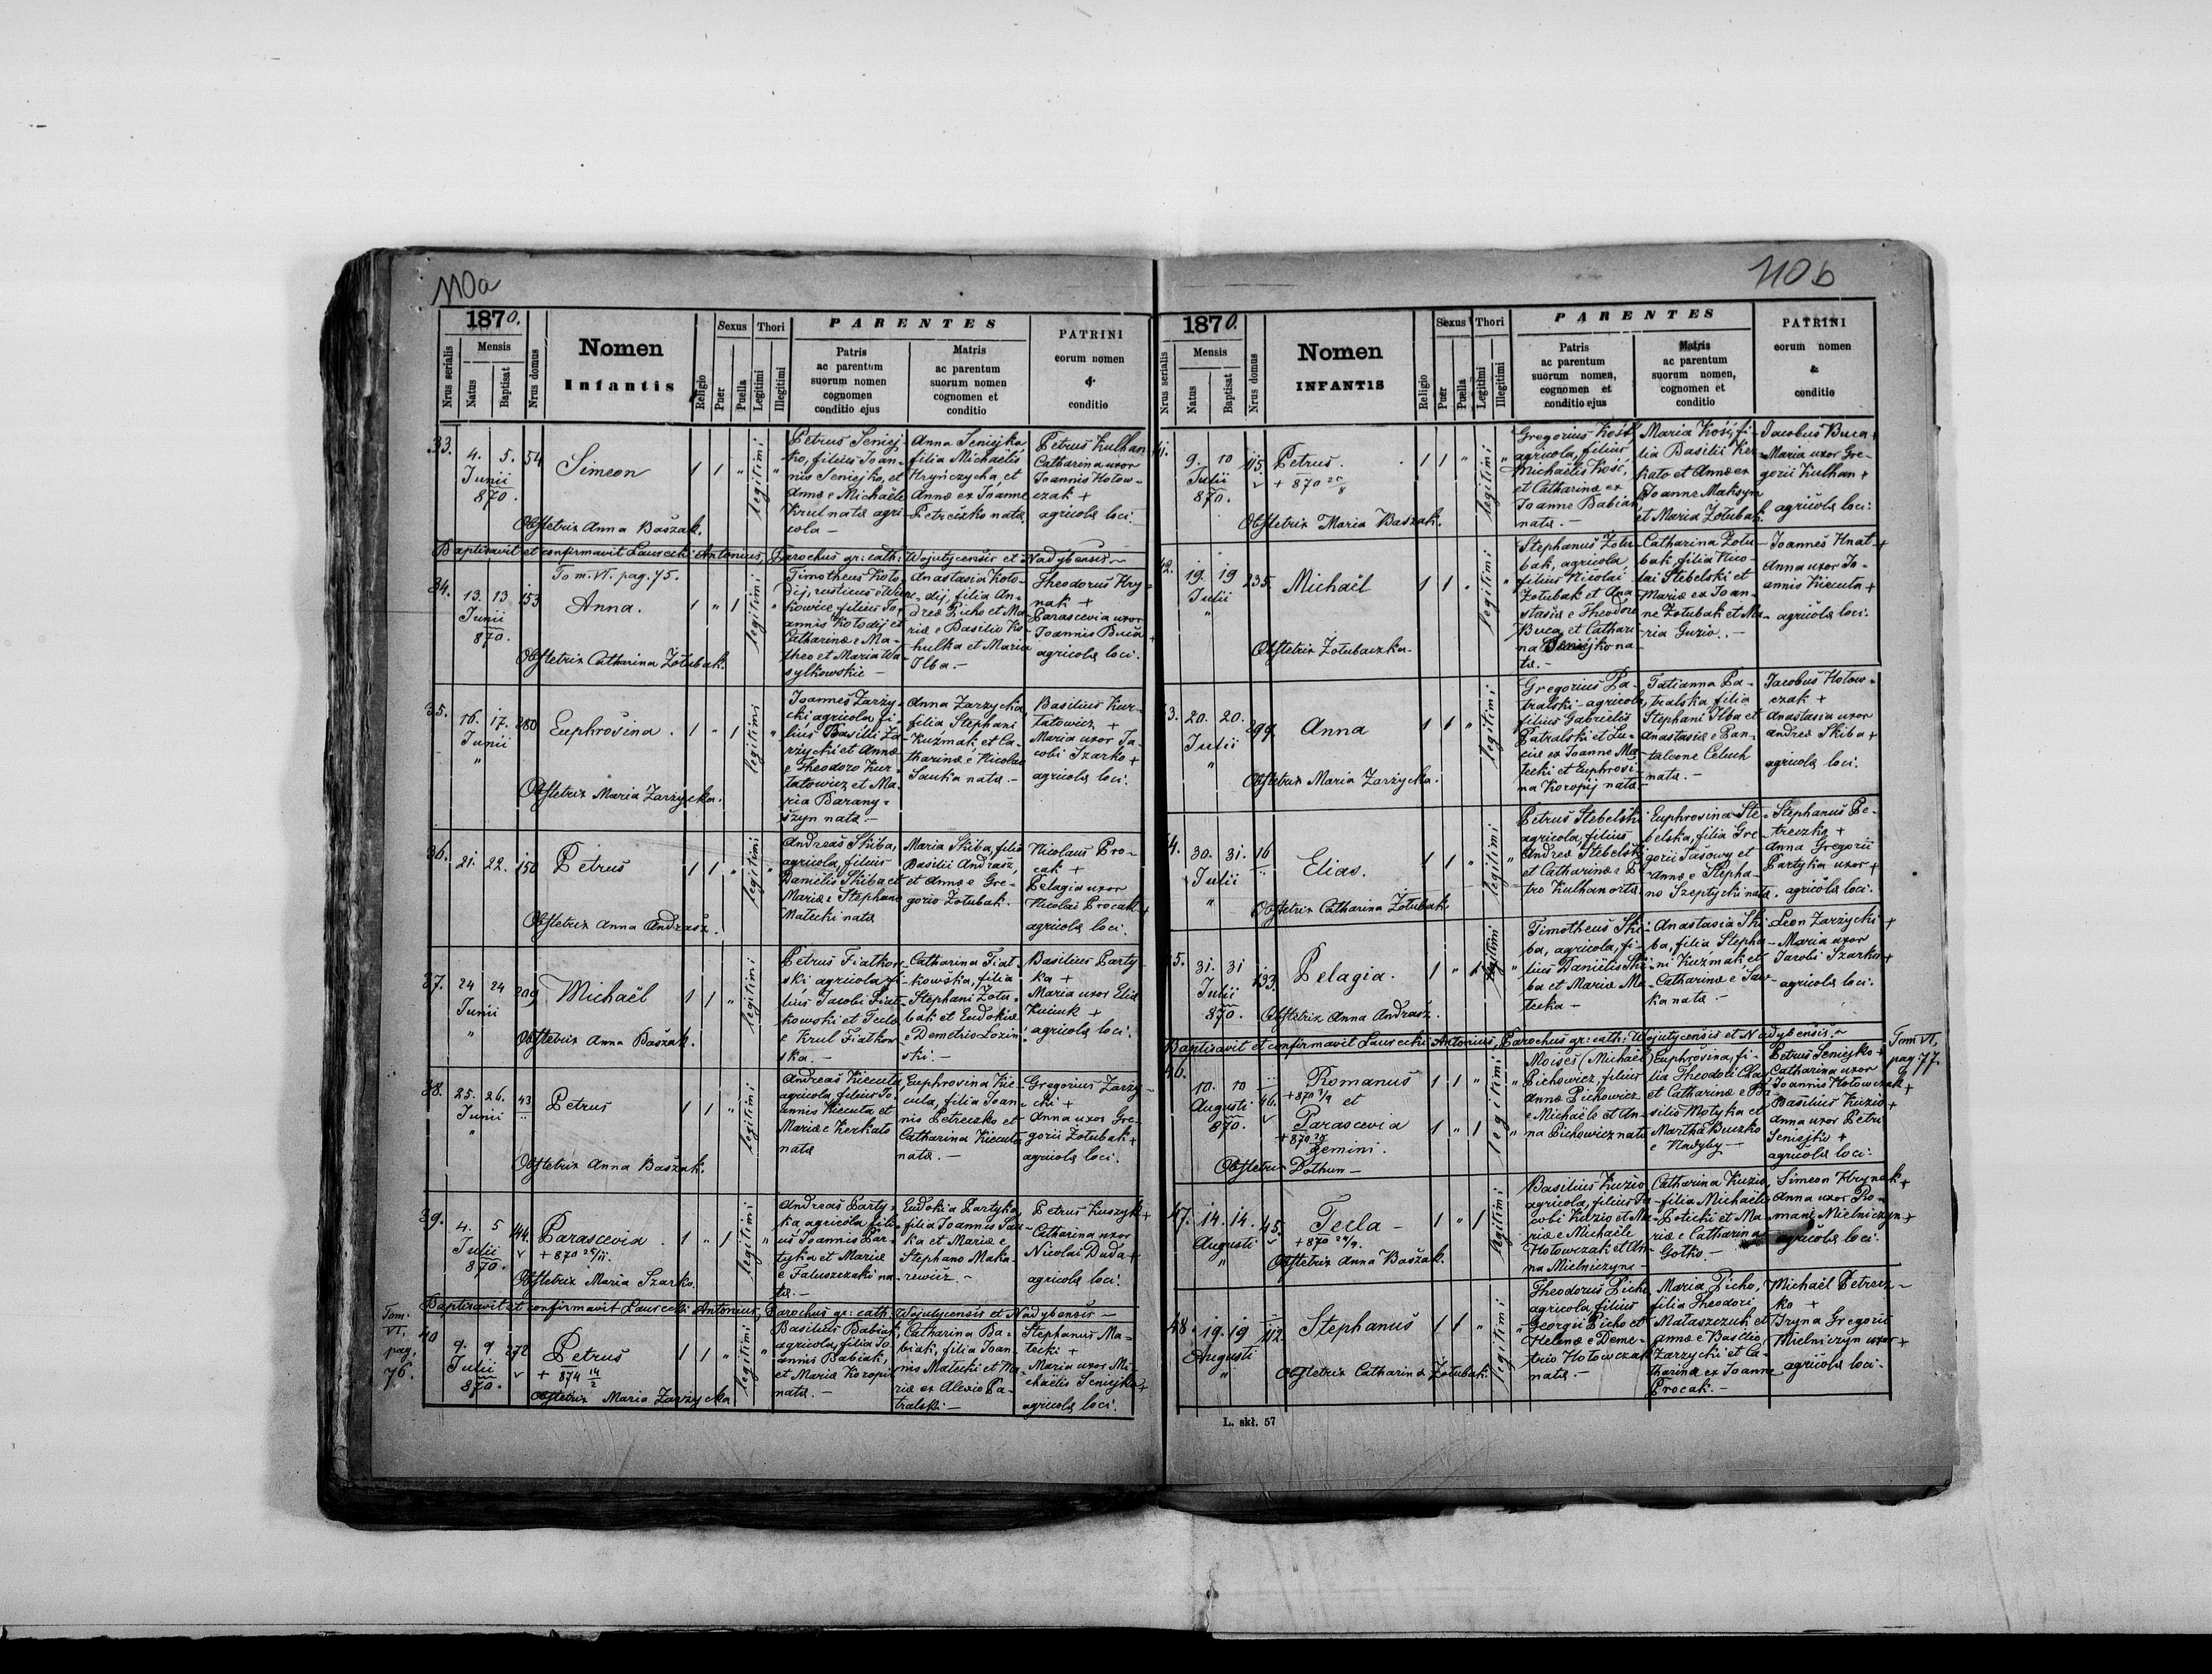 110a
1870.
Nrus serialis
Mensis
Natus
Baptisat
Nrus domus
Nomen
Infantis
Religio
Sexus
Puer
Puella
Thori
Legitimi
Illegitimi
PARENTES
Patris
ac parentum
suorum nomen
cognomen
conditio ejus
Matris
ac parentum
suorum nomen
cognomen et
conditio
PATRINI
eorum nomen
&
conditio
33.
4. 5.
Junii
870.
54
Simeon
1 1 "
legitimi
"
Petrus Seniej-
ko, filius Joan-
nis Seniejko, et
Annæ e Michaele
Krul natæ agri-
cola —
Anna Seniejko,
filia Michaelis
Hryńczycha, et
Annæ ex Joanne
Petreczko nata.
Petrus Kulhan
Catharina uxor
Joannis Hołow-
czak +
agricolæ loci.
Obstetrix Anna Baszak.
Baptisavit et confirmavit Laurecki Antonius, Parochus gr: cath: Wojutycensis et Nadybensis
Tom. VI. pag. 75.
34.
13. 13
Junii
870.
153
Anna.
1 " 1
legitimi
"
Timotheus Koło-
dij, rusticus e Wań-
kowice filius Jo-
annis Kołodij et
Catharinæ e Ma-
theo et Maria Wa-
sylkowskie —
Anastasia Koło-
dij, filia An-
dreæ Picho et Ma-
riæ e Basilio Ko-
hulka et Maria
Ilba. —
Theodorus Hry-
nak +
Parascevia uxor
Joannis Buca +
agricolæ loci.
Obstetrix Catharina Żołubak.
35.
16. 17.
Junii
"
280
Euphrosina.
1 " 1
legitimi
Joannes Zarzy-
cki agricola fi-
lius Basilii Za-
rzycki et Annæ
e Theodoro Kur-
tatowicz et Ma-
ria Barany-
szyn natæ —
Anna Zarzycka
filia Stephani
Kuzmak, et Ca-
tharinæ e Nicolao
Sauka nata. —
Basilius Kur-
tatowicz +
Maria uxor Ja-
cobi Szarko +
agricolæ loci.
Obstetrix Maria Zarzycka.
36.
21. 22.
150
Petrus
1 1 "
legitimi
"
Andreas Skiba,
agricola, filius
Danielis Skiba et
Mariæ e Stephano
Małecki natæ
Maria Skiba, filia
Basilii Andrasz,
et Annæ e Gre-
gorio Żołubak.
Nicolaus Pro-
cak +
Pelagia uxor
Nicolai Procak +
agricolæ loci.
Obstetrix Anna Andrasz.
37.
24 24
Junii
"
209
Michaël
1 1 "
legitimi
Petrus Fiałkow-
ski agricola fi-
lius Jacobi Fiał-
kowski et Teclæ
e Krul Fiałkow-
ska. —
Catharina Fiał-
kowska, filia
Stephani Żołu-
bak et Eudokiæ
e Demetrio Łozin-
ski. —
Basilius Party-
ka +
Maria uxor Eliæ
Kuciuk +
agricolæ loci.
Obstetrix Anna Baszak.
38.
25. 26.
Junii
"
43
Petrus
1 1 "
legitimi
Andreas Kiecuta,
agricola, filius Jo-
annis Kiecuta et
Mariæ e Kerkato
natæ
Euphrosina Kie-
cuta, filia Joan-
nis Petreczko et
Catharina Kiecuta
natæ. —
Gregorius Zarzy-
cki +
Anna uxor Gre-
gorii Żołubak +
agricolæ loci.
Obstetrix Anna Baszak.
39.
4. 5
Julii
870.
144.
Parascevia.
+ 870 25/11.
1 " 1
legitimi
"
Andreas Party-
ka agricola fili-
us Joannis Par-
tyka et Mariæ
e Faluszczaki na-
tæ. —
Eudokia Partyka,
filia Joannis Sau-
ka et Mariæ e
Stephano Maka-
rewicz. —
Petrus Kuszyk +
Catharina uxor
Nicolai Duda +
agricolæ loci.
Obstetrix Maria Szarko.
Baptisavit et confirmavit Laurecki Antonius, Parochus gr: cath: Wojutycensis et Nadybensis —
Tom.
VI.
pag.
76.
40
9. 9
Julii
870.
272
Petrus
+ 874 14/2
1 1 "
legitimi
"
Basilius Babiak,
agricola, filia Jo-
annis Babiak,
et Mariæ Koropij
natæ. —
Catharina Ba-
biak, filia Joan-
nis Małecki et Ma-
riæ ex Alexio Pa-
tralski —
Stephanus Ma-
łecki +
Maria uxor Mi-
chaëlis Seniejko +
agricolæ loci.
Obstetrix Maria Zarzycka
110b
1870.
Nrus serialis
Mensis
Natus
Baptisat
Nrus domus
Nomen
INFANTIS
Religio
Sexus
Puer
Puella
Thori
Legitimi
Illegitimi
PARENTES
Patris
ac parentum
suorum nomen,
cognomen et
conditio ejus
Matris
ac parentum
suorum nomen,
cognomen et
conditio
PATRINI
eorum nomen
&
conditio
41.
9. 10
Julii
870.
115.
Petrus.
+ 870 25/8
1 1 "
legitimi
"
Gregorius Kość
agricola, filius
Michaelis Kość,
et Catharinæ ex
Joanne Babiak
natæ. —
Maria Kość, fi-
lia Basilii Ker-
kato et Annæ ex
Joanne Maksym
et Maria Żołubak.
Jacobus Buca +
Maria uxor Gre-
gorii Kulhan +
agricolæ loci.
Obstetrix Maria Baszak.
42.
19. 19
Julii
"
235.
Michaël
1 1 "
legitimi
"
Stephanus Żołu-
bak, agricola,
filius Nicolai
Żołubak et Ana-
stasiæ e Theodoro
Buca et Cathari-
na Seniejko na-
tæ. —
Catharina Żołu-
bak, filia Nico-
lai Stebelski et
Mariæ ex Joan-
ne Żołubak et Ma-
ria Guzio. —
Joannes Hnat +
Anna uxor Jo-
annis Kiecuta +
agricolæ loci.
Obstetrix Żołubaczka.
43.
20. 20.
Julii
"
299.
Anna
1 1 "
legitimi
Gregorius Pa-
tralski agricola,
filius Gabrielis
Patralski et Lu-
ciæ ex Joanne Ma-
łecki et Euphrosi-
na Koropij natæ
Tatianna Pa-
tralska, filia
Stephani Ilba et
Anastasiæ e Pan-
taleone Celuch
nata. —
Jacobus Hołow-
czak +
Anastasia uxor
Andreæ Skiba +
agricolæ loci.
Obstetrix Maria Zarzycka.
44.
30. 31.
Julii
"
16
Elias.
1 1 "
legitimi
"
Petrus Stebelski
agricola, filius
Andreæ Stebelski
et Catharinæ e Pe-
tro Kulhan ortæ
Euphrosina Ste-
belska, filia Gre-
gorii Sasowy et
Annæ e Stepha-
no Szeptycki nata.
Stephanus Pe-
treczko +
Anna Gregorii
Partyka uxor +
agricolæ loci.
Obstetrix Catharina Żołubak
45.
31. 31
Julii
870.
139.
Pelagia.
1 " 1
legitimi
"
Timotheus Ski-
ba, agricola, fi-
lius Danielis Ski-
ba et Mariæ Ma-
łecka —
Anastasia Ski-
ba, filia Stepha-
ni Kuzmak et
Catharinæ e Sau-
ka nata —
Leon Zarzycki +
Maria uxor
Jacobi Szarko +
agricolæ loci.
Obstetrix Anna Andrasz.
Baptisavit et confirmavit Laurecki Antonius, Parochus gr: cath: Wojutycensis et Nadybensis
Tom VI,
pag. 77.
46.
10. 10
Augusti
870.
46.
Romanus
+ 870 1/9 et
Parascevia
+ 870
gemini.
1 1 "
1 " 1
legitimi
"
Moises (Michaël)
Pichowicz, filius
Annæ Pichowicz
e Michaële et An-
na Pichowicz natæ
Euphrosina, fi-
lia Theodori
et Catharinæ e Ba-
silio Motyka et
Martha Buczko
e Nadyby —
Petrus Seniejko +
Catharina uxor
Joannis Hołowczak +
Basilius Kuzio +
Anna uxor Petri
Seniejko +
agricolæ loci.
Obstetrix Dothun —
47.
14. 14.
Augusti
"
45.
Tecla —
+ 870 24/9.
1 " 1
legitimi
Basilius Kuzio,
agricola, filius Ja-
cobi Kuzio et Ma-
riæ e Michaële
Hołowczak et An-
na Mielniczyn
Catharina Kuzio,
filia Michaelis
Poticki et Ma-
riæ e Catharina
Gotko —
Simeon Hrynak +
Anna uxor Ro-
mani Mielniczyn +
agricolæ loci.
Obstetrix Anna Baszak.
48.
19. 19
Augusti
"
112.
Stephanus
1 1 "
legitimi
"
Theodorus Picho
agricola, filius
Georgii Picho et
Helenæ e Deme-
trio Hołowczak
natæ. —
Maria Picho,
filia Theodori
Mataszczuk et
Annæ e Basilio
Zarzycki et Ca-
tharina ex Joanne
Procak. —
Michaël Petrecz-
ko +
Iryna Gregorii
Mielniczyn uxor +
agricolæ loci.
Obstetrix Catharina Żołubak.
L. skł. 57